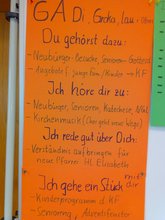 GA Di, Gocka, Lau
Du gehörst dazu:
- Neubürger-Besuche, Senioren-
- Angebote f. junge Fam./Kinder → KF
Ich höre dir zu:
- Neubürger, Senioren, Katechese,
- Kirchenmusik (Chor geht neue Wege)
Ich rede gut über Dich:
- Verständnis aufbringen für
neue Pfarrei Hl. Elisabeth
Ich gehe ein Stück
mit dir
- Kinderprogramm d. KF
- Senioring